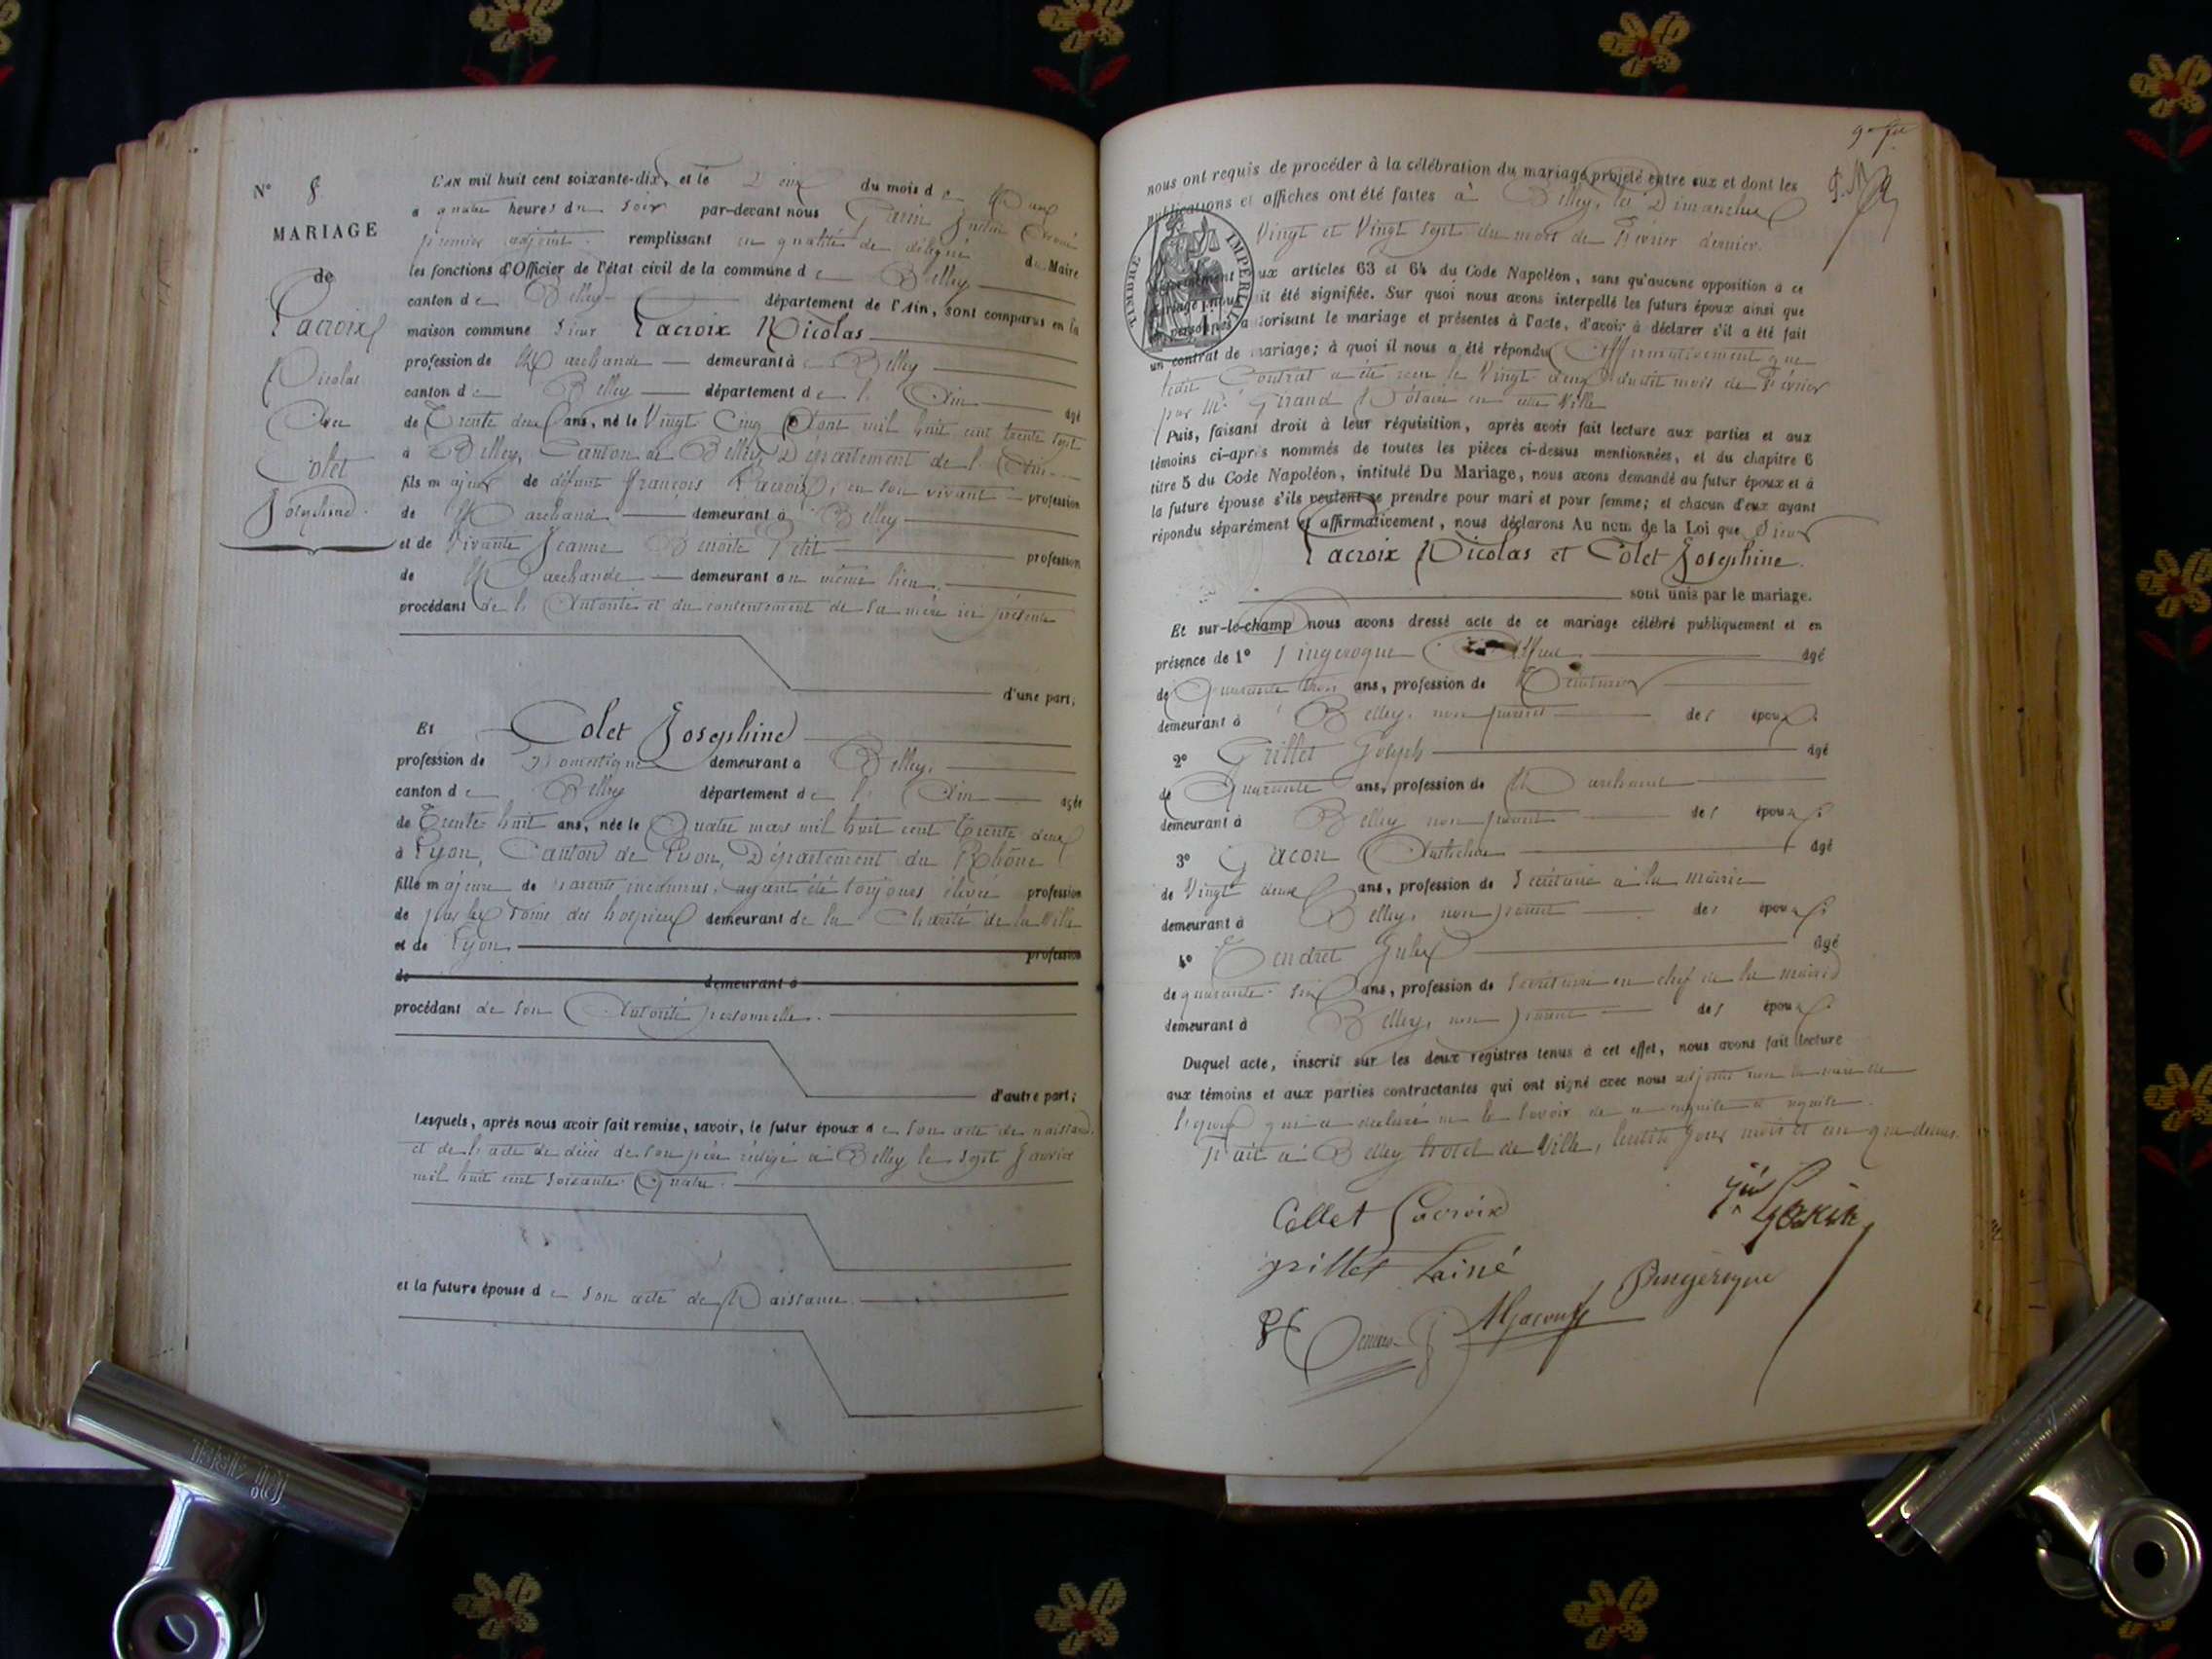 N° 8
MARIAGE
de
Lacroix
Nicolas
Avec
Colet
Josephine.
L'AN mil huit cent soixante-dix, et le Deux du mois de Mars
à quatre heures du soir par-devant nous Garin
premier adjoint remplissant en qualité de délégué du Maire
les fonctions d'Officier de l'état civil de la commune de Belley
canton de Belley département de l'Ain, sont comparus en la
maison commune Sieur Lacroix Nicolas
profession de Marchand demeurant à Belley
canton de Belley département de l'Ain âgé
de Trente deux ans, né le Vingt Cinq Aout mil huit cent trente sept
à Belley, Canton de Belley, Département de l'Ain
fils majeur de défunt François Lacroix, en son vivant profession
de Marchand demeurant à Belley
et de vivante Jeanne Benoite Petit profession
de Marchande demeurant au même lieu.
procédant de l'Autorité et du consentement de sa mère ici présente
d'une part;
Et Colet Josephine
profession de Domestique demeurant à Belley.
canton de Belley département de l'Ain âgée
de Trente-huit ans, née le Quatre mars mil huit cent trente deux
à Lyon, Canton de Lyon, Département du Rhône
fille majeure de parents inconnus, ayant été toujours élevée profession
de par les soins des hospices demeurant de la Charité de la Ville
et de Lyon. profession
de demeurant à
procédant de son Autorité personnelle.
d'autre part;
Lesquels, après nous avoir fait remise, savoir, le futur époux de son acte de naissance
et de l'acte de décès de son père rédigé à Belley le sept Janvier
mil huit cent soixante Quatre.
et la future épouse de son acte de Naissance.
nous ont requis de procéder à la célébration du mariage projeté entre eux et dont les
publications et affiches ont été faites à Belley, les Dimanches
Vingt et Vingt sept du mois de Février dernier.
TIMBRE IMPERIAL
conformément aux articles 63 et 64 du Code Napoléon, sans qu'aucune opposition à ce
mariage nous ait été signifiée. Sur quoi nous avons interpellé les futurs époux ainsi que
les personnes autorisant le mariage et présentes à l'acte, d'avoir à déclarer s'il a été fait
un contrat de mariage; à quoi il nous a été répondu Affirmativement que
ledit Contrat a été reçu le Vingt deux dudit mois de Février
par Me Giraud Notaire en cette Ville
Puis, faisant droit à leur réquisition, après avoir fait lecture aux parties et aux
témoins ci-après nommés de toutes les pièces ci-dessus mentionnées, et du chapitre 6
titre 5 du Code Napoléon, intitulé Du Mariage, nous avons demandé au futur époux et à
la future épouse s'ils veulent se prendre pour mari et pour femme; et chacun d'eux ayant
répondu séparément et affirmativement, nous déclarons Au nom de la Loi que Sieur
Lacroix Nicolas et Colet Josephine.
sont unis par le mariage.
Et sur-le-champ nous avons dressé acte de ce mariage célébré publiquement et en
présence de 1° Pingeroque âgé
de Quarante trois ans, profession de
demeurant à Belley, non parent des époux.
2° Grillet Joseph âgé
de Quarante ans, profession de Marchand
demeurant à Belley non parent des époux.
3° Gacon Anthelme âgé
de Vingt deux ans, profession de Secrétaire à la mairie
demeurant à Belley, non parent des époux.
4° Tendret Jules âgé
de quarante-six ans, profession de Secrétaire en chef de la mairie
demeurant à Belley, non parent des époux.
Duquel acte, inscrit sur les deux registres tenus à cet effet, nous avons fait lecture
aux témoins et aux parties contractantes qui ont signé avec nous adjoint non la mère de
l'époux qui a déclaré ne le savoir de ce enquise et requise.
Fait à Belley hotel de Ville, lesdits jour mois et an que dessus.
Collet Lacroix
Jin Garin
grillet Lainé
Pingeroque
AGacon